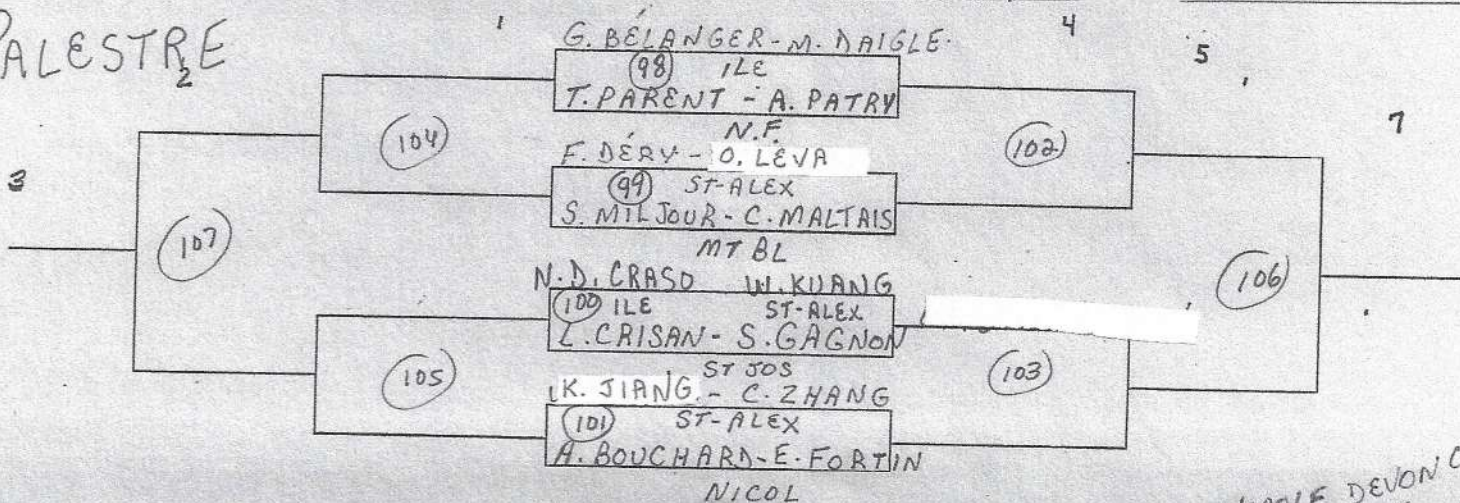 PALESTRE
2
1
4
5
7
3
G. BÉLANGER - M. DAIGLE
98 ILE
T. PARENT - A. PATRY
N.F.
104
102
F. DÉRY - O. LEVA
99 ST-ALEX
S. MILJOUR - C. MALTAIS
MT BL
107
106
N.D. CRASO W. KUANG
100 ILE ST-ALEX
L. CRISAN - S. GAGNON
ST JOS
105
103
K. JIANG - C. ZHANG
101 ST-ALEX
A. BOUCHARD - E. FORTIN
NICOL
DEVON